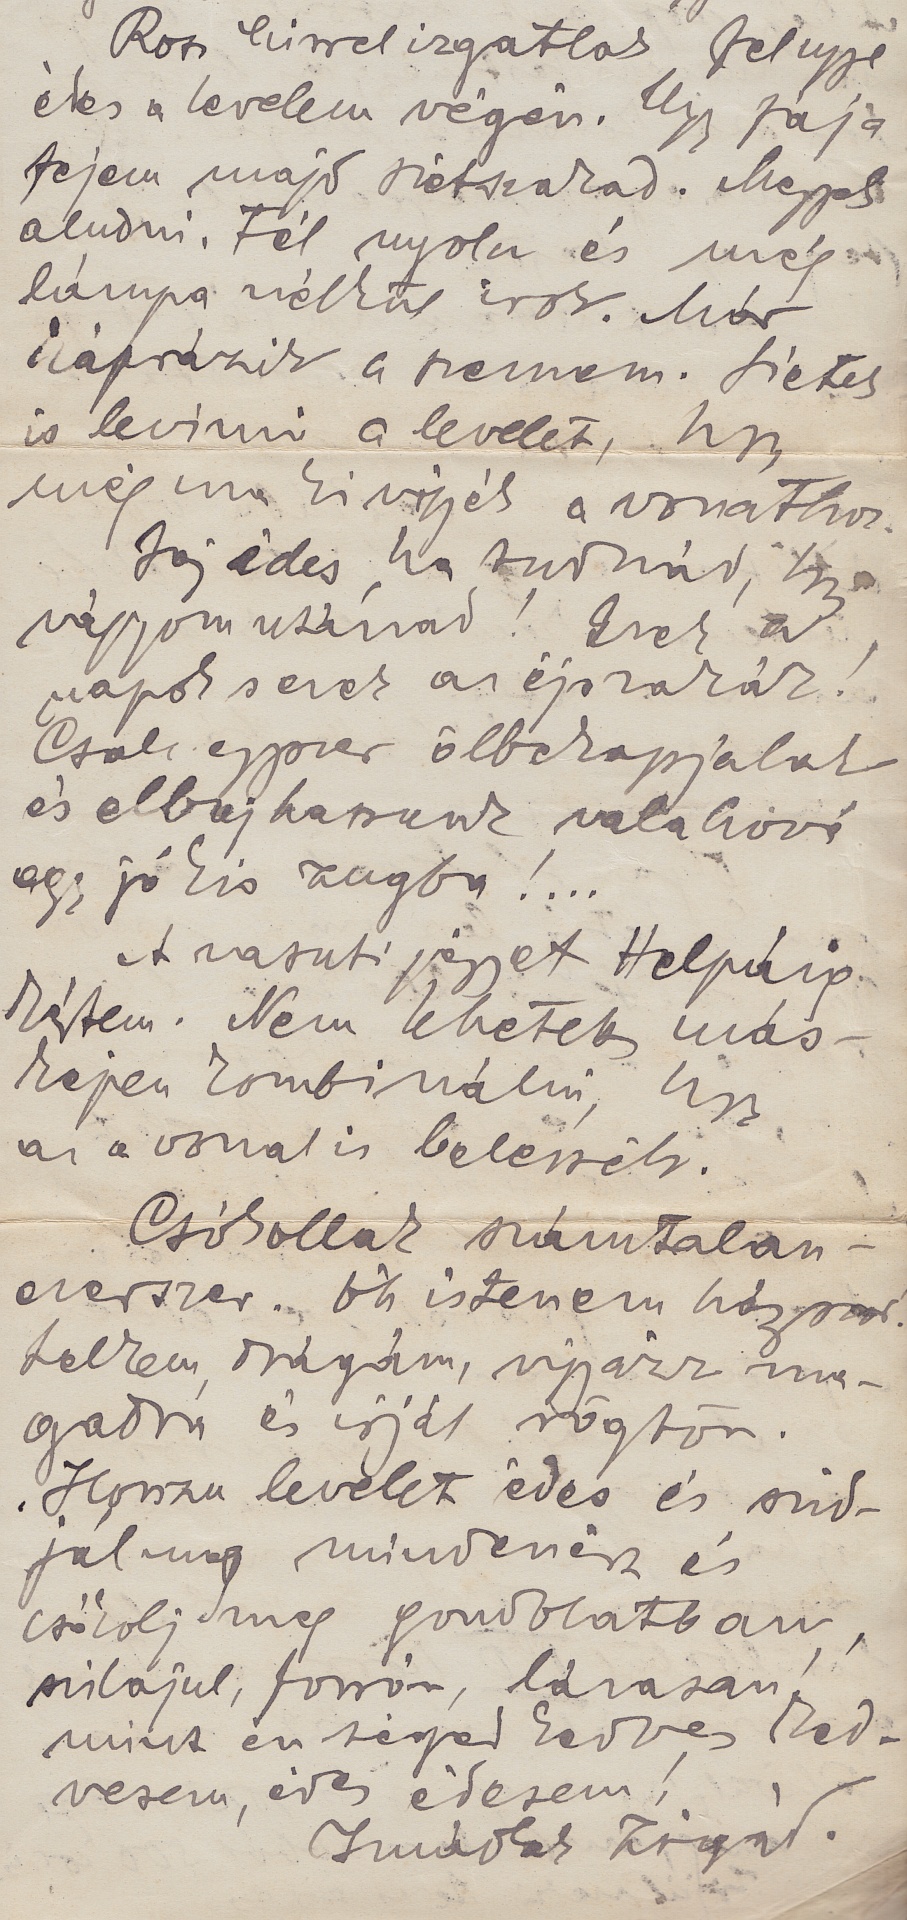 Rossz hirrel izgatlak fel ugye
édes a levelem végén. Ugy fáj a
fejem majd szétszakad. Megyek
aludni. Fél nyolc és még
lámpa nélkül irok. Már
káprázik a szemem. Sietek
is levinni a levelet, hogy
még ma kivigyék a vonathoz.
Jaj édes ha tudnád, hogy
vágyom utánad! Ezek a
napok s ezek az éjszakák!
Csak egyszer ölbekapjalak
és elbujhassunk valahová
egy jó kis zugba!...
A vasuti jegyet Helpáig
kértem. Nem lehetett más-
képen kombinálni, hogy
az a vonat is beleessék.
Csókollak számtalan-
ezerszer. Óh istenem
telkem, drágám, vigyázz ma-
gadra és irjál rögtön.
Hosszu levelet édes és szid-
jál meg mindenért és
csókolj meg gondolatban,
vilajul, forrón, lázasan!
mint én téged kedves ked-
vesem, édes édesem!
Imádlak